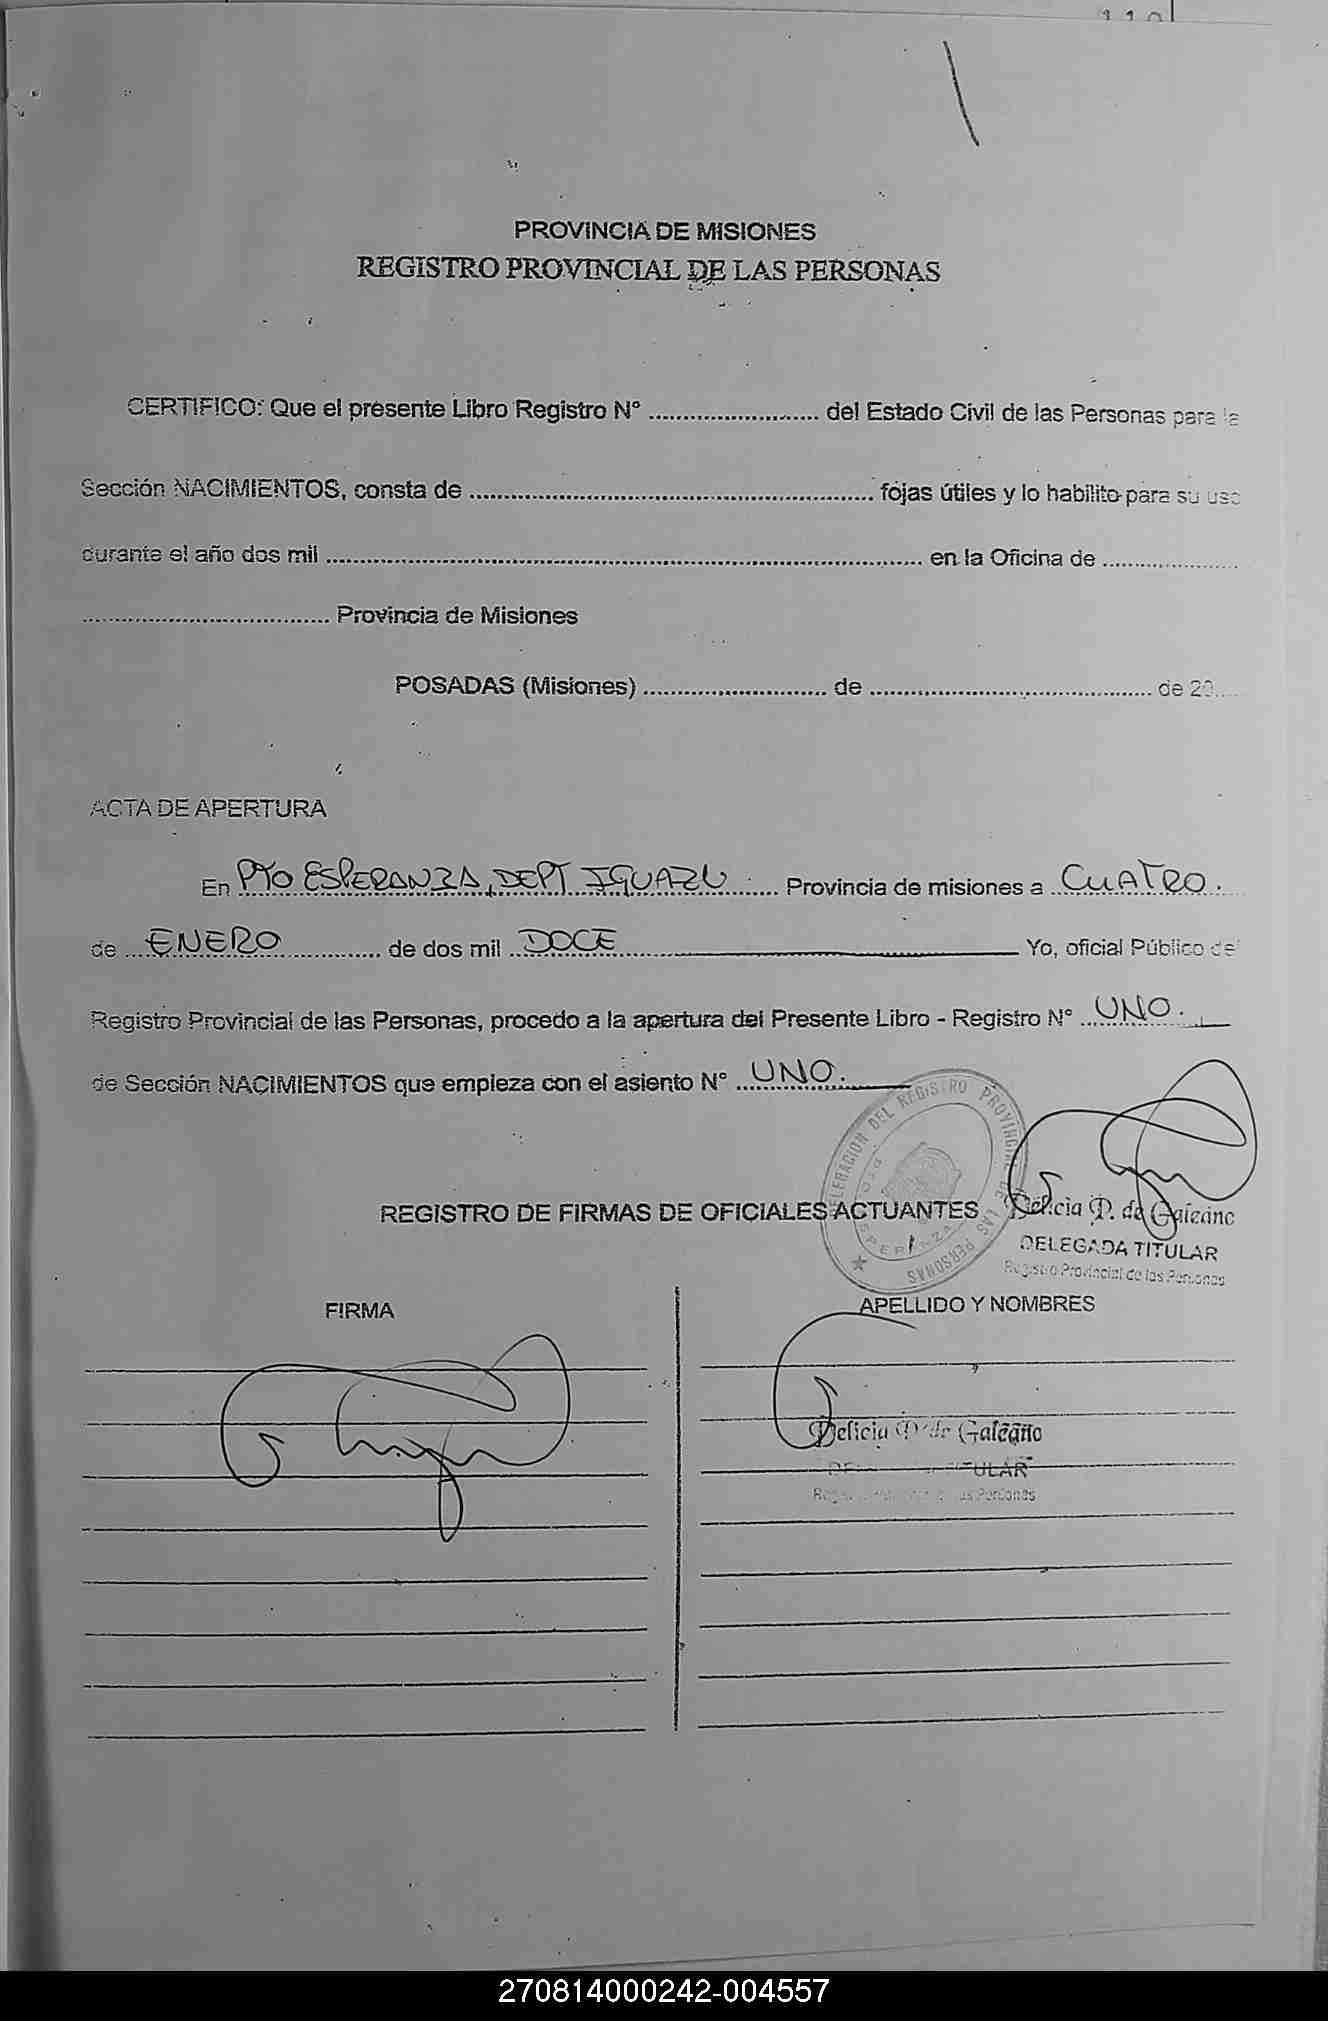 PROVINCIA DE MISIONES
REGISTRO PROVINCIAL DE LAS PERSONAS
CERTIFICO: Que el presente Libro Registro N° ......................... del Estado Civil de las Personas para la
Sección NACIMIENTOS, consta de ............................................................ fojas útiles y lo habilito para su uso
durante el año dos mil ......................................................................................... en la Oficina de .....................
..................................... Provincia de Misiones
POSADAS (Misiones) ........................... de .......................................... de 20....
ACTA DE APERTURA
En PTO ESPERANZA, DEPT IGUAZU. Provincia de misiones a CUATRO.
de ENERO de dos mil DOCE Yo, oficial Público del
Registro Provincial de las Personas, procedo a la apertura del Presente Libro - Registro N° UNO.
de Sección NACIMIENTOS que empieza con el asiento N° UNO.
DEL REGISTRO PROVINCIAL DE LAS PERSONAS
REGISTRO DE FIRMAS DE OFICIALES ACTUANTES
Delicia P. de Galeano
DELEGADA TITULAR
Registro Provincial de las Personas
FIRMA
APELLIDO Y NOMBRES
Delicia P. de Galeano
TITULAR
las Personas
270814000242-004557